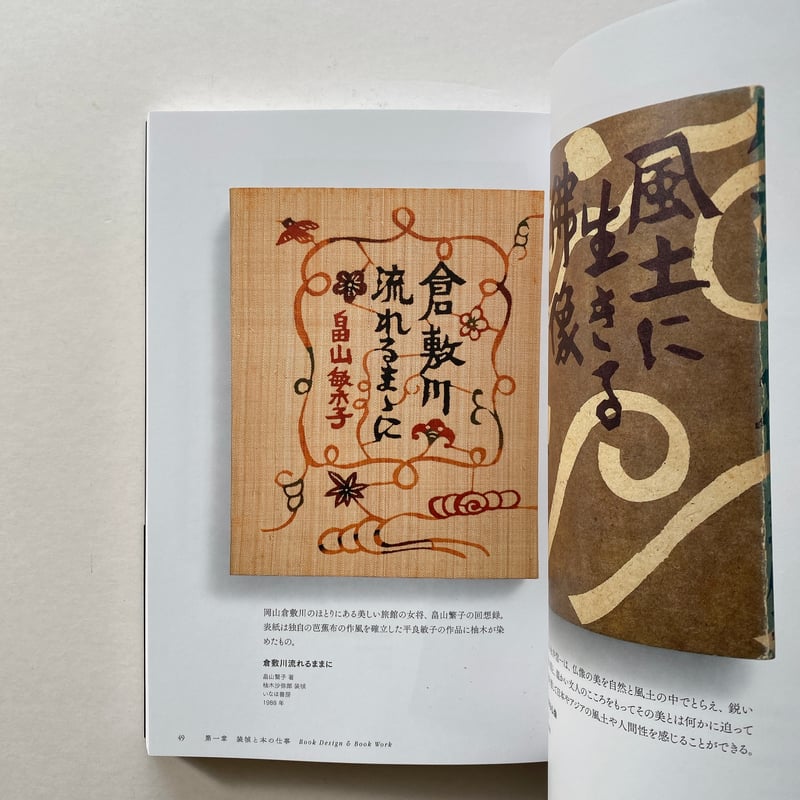 倉敷川
流れるまゝに
畠山繁子
岡山倉敷川のほとりにある美しい旅館の女将、畠山繁子の回想録。
表紙は独自の芭蕉布の作風を確立した平良敏子の作品に柚木が染
めたもの。
倉敷川流れるままに
畠山繁子 著
柚木沙弥郎 装幀
いなほ書房
1988 年
49 第一章 装幀と本の仕事 Book Design & Book Work
風土に
生きる
佛像
は、仏像の美を自然と風土の中でとらえ、鋭い
文人のこころをもってその美とは何かに迫って
日本やアジアの風土や人間性を感じることができる。